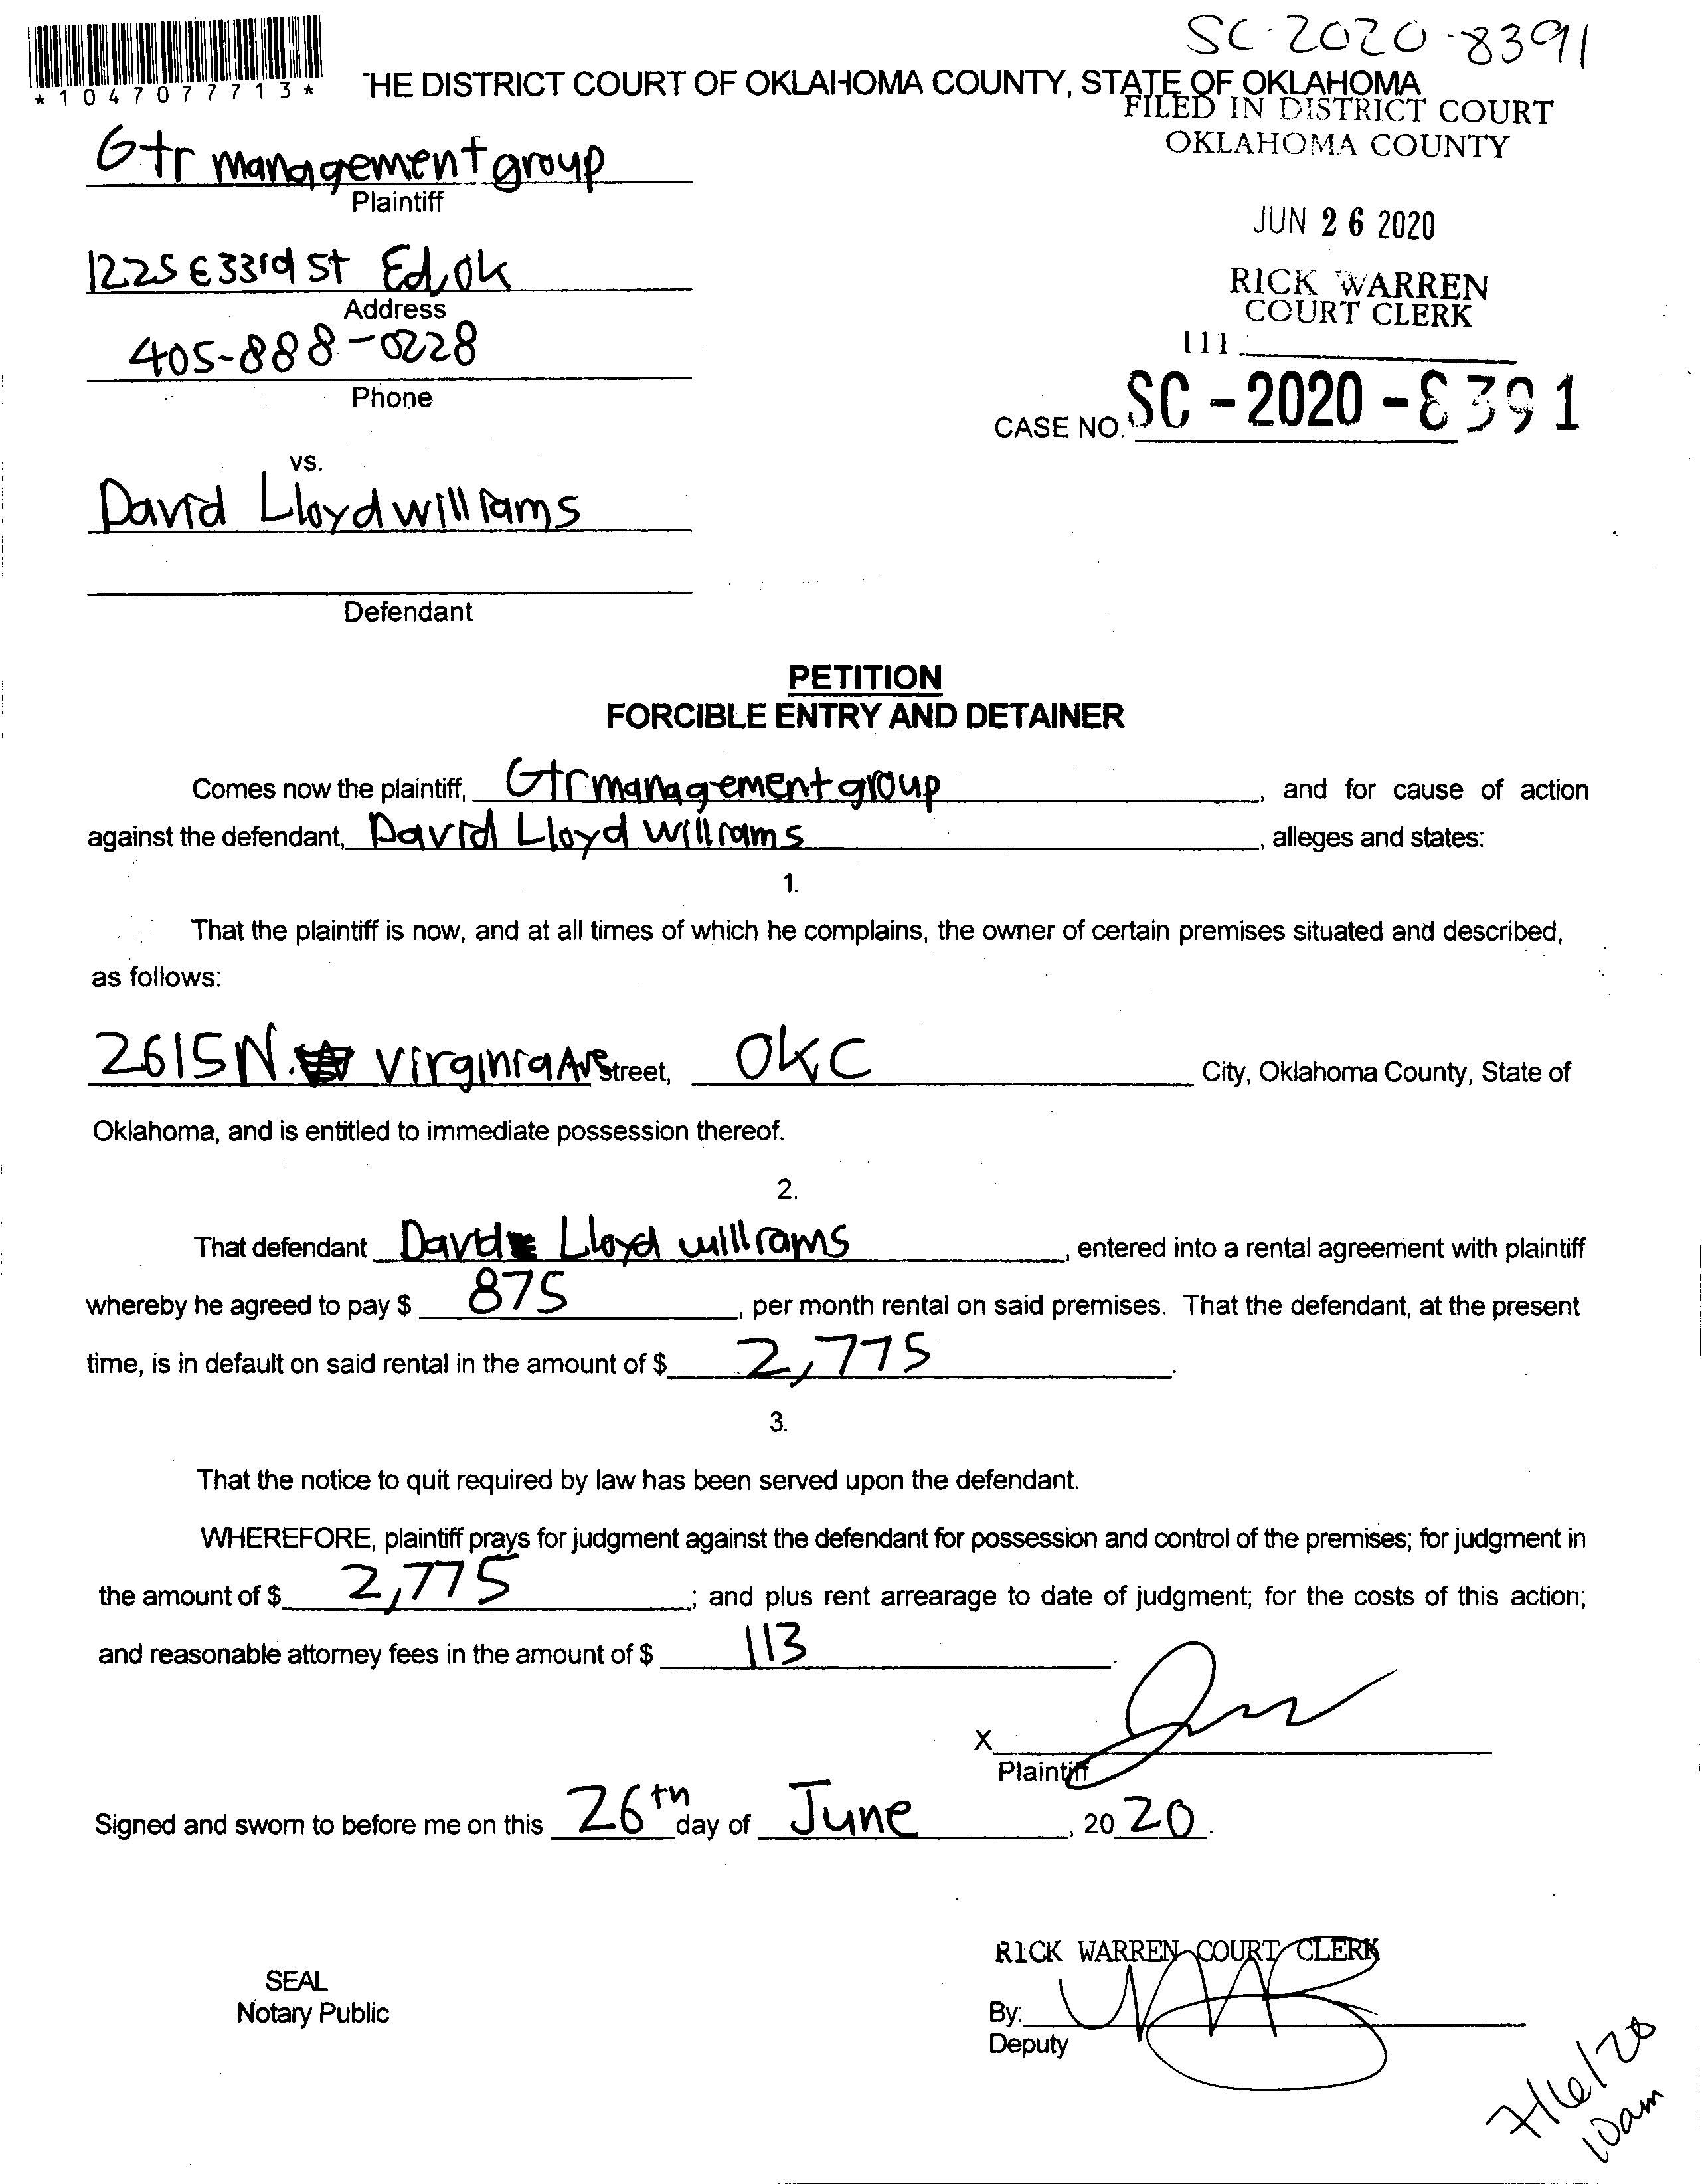 SC-2020-8391
*1047077713*
THE DISTRICT COURT OF OKLAHOMA COUNTY, STATE OF OKLAHOMA
FILED IN DISTRICT COURT
OKLAHOMA COUNTY
Gtr management group
Plaintiff
JUN 26 2020
1225 E 33rd St Ed, Ok
Address
RICK WARREN
COURT CLERK
405-888-0228
111
Phone
CASE NO. SC-2020-8391
vs.
David Lloyd williams
Defendant
PETITION
FORCIBLE ENTRY AND DETAINER
Comes now the plaintiff, Gtr management group, and for cause of action
against the defendant, David Lloyd williams, alleges and states:
1.
That the plaintiff is now, and at all times of which he complains, the owner of certain premises situated and described,
as follows:
2615 N. Virginia Ave Street, OKC City, Oklahoma County, State of
Oklahoma, and is entitled to immediate possession thereof.
2.
That defendant David Lloyd williams, entered into a rental agreement with plaintiff
whereby he agreed to pay $ 875, per month rental on said premises. That the defendant, at the present
time, is in default on said rental in the amount of $ 2,775.
3.
That the notice to quit required by law has been served upon the defendant.
WHEREFORE, plaintiff prays for judgment against the defendant for possession and control of the premises; for judgment in
the amount of $ 2,775; and plus rent arrearage to date of judgment; for the costs of this action;
and reasonable attorney fees in the amount of $ 113.
X
Plaintiff
Signed and sworn to before me on this 26th day of June, 2020.
RICK WARREN COURT CLERK
SEAL
Notary Public
By:
Deputy
7/16/20
10am